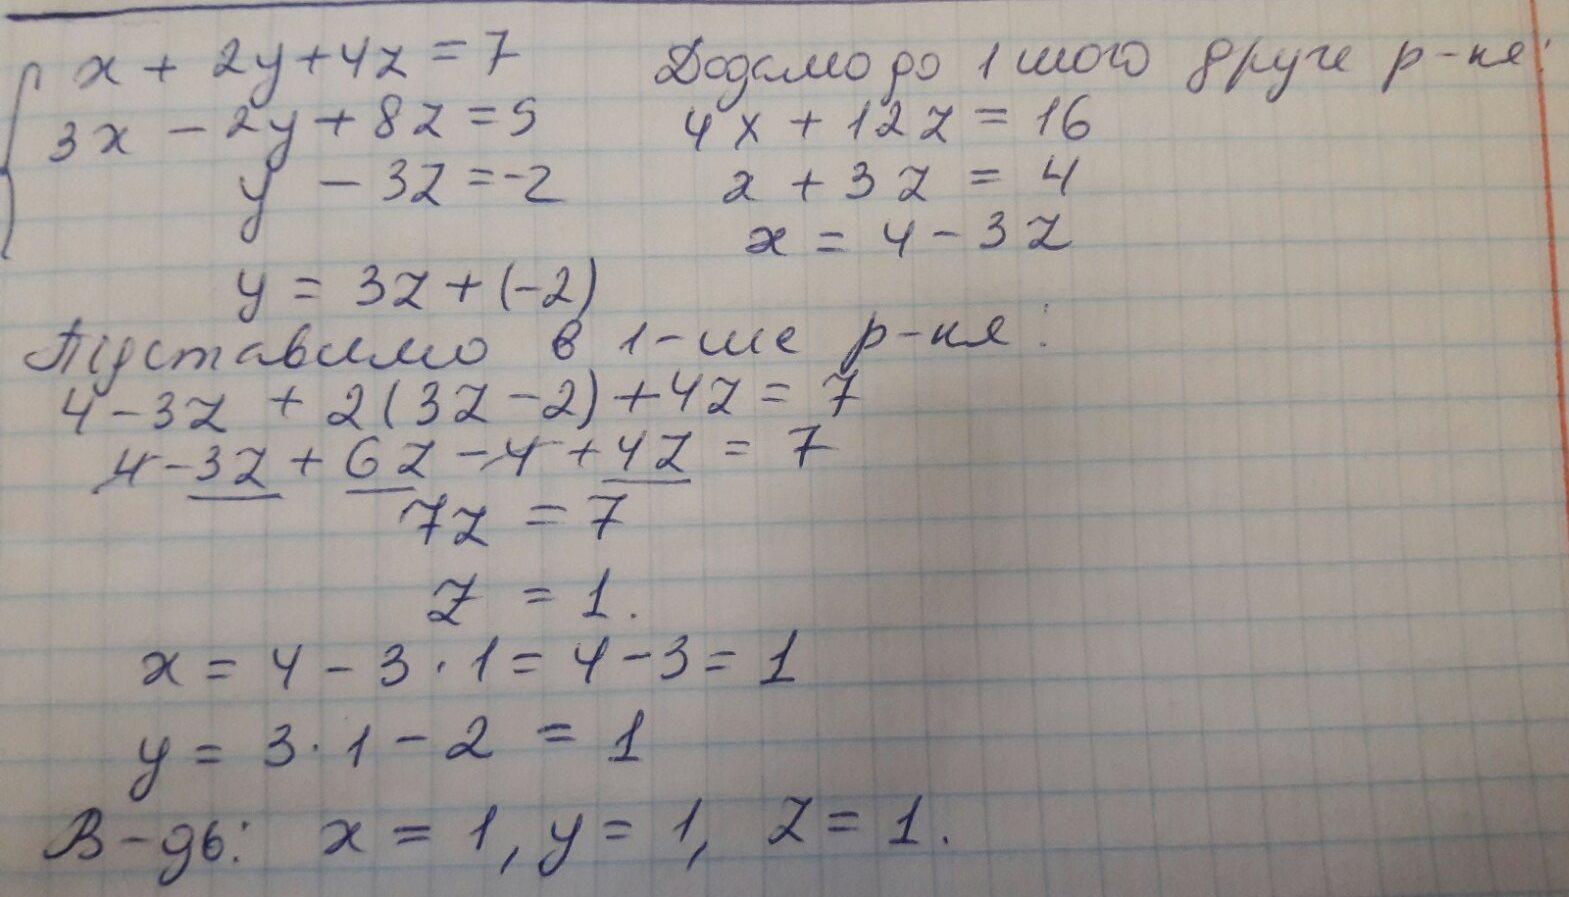 x + 2y + 4z = 7
3x - 2y + 8z = 9
y - 3z = -2
y = 3z + (-2)
Додамо до 1 шого друге р-ня:
4x + 12z = 16
x + 3z = 4
x = 4 - 3z
Підставимо в 1-ше р-ня:
4 - 3z + 2(3z - 2) + 4z = 7
4 - 3z + 6z - 4 + 4z = 7
7z = 7
z = 1.
x = 4 - 3 · 1 = 4 - 3 = 1
y = 3 · 1 - 2 = 1
В-дь: x = 1, y = 1, z = 1.